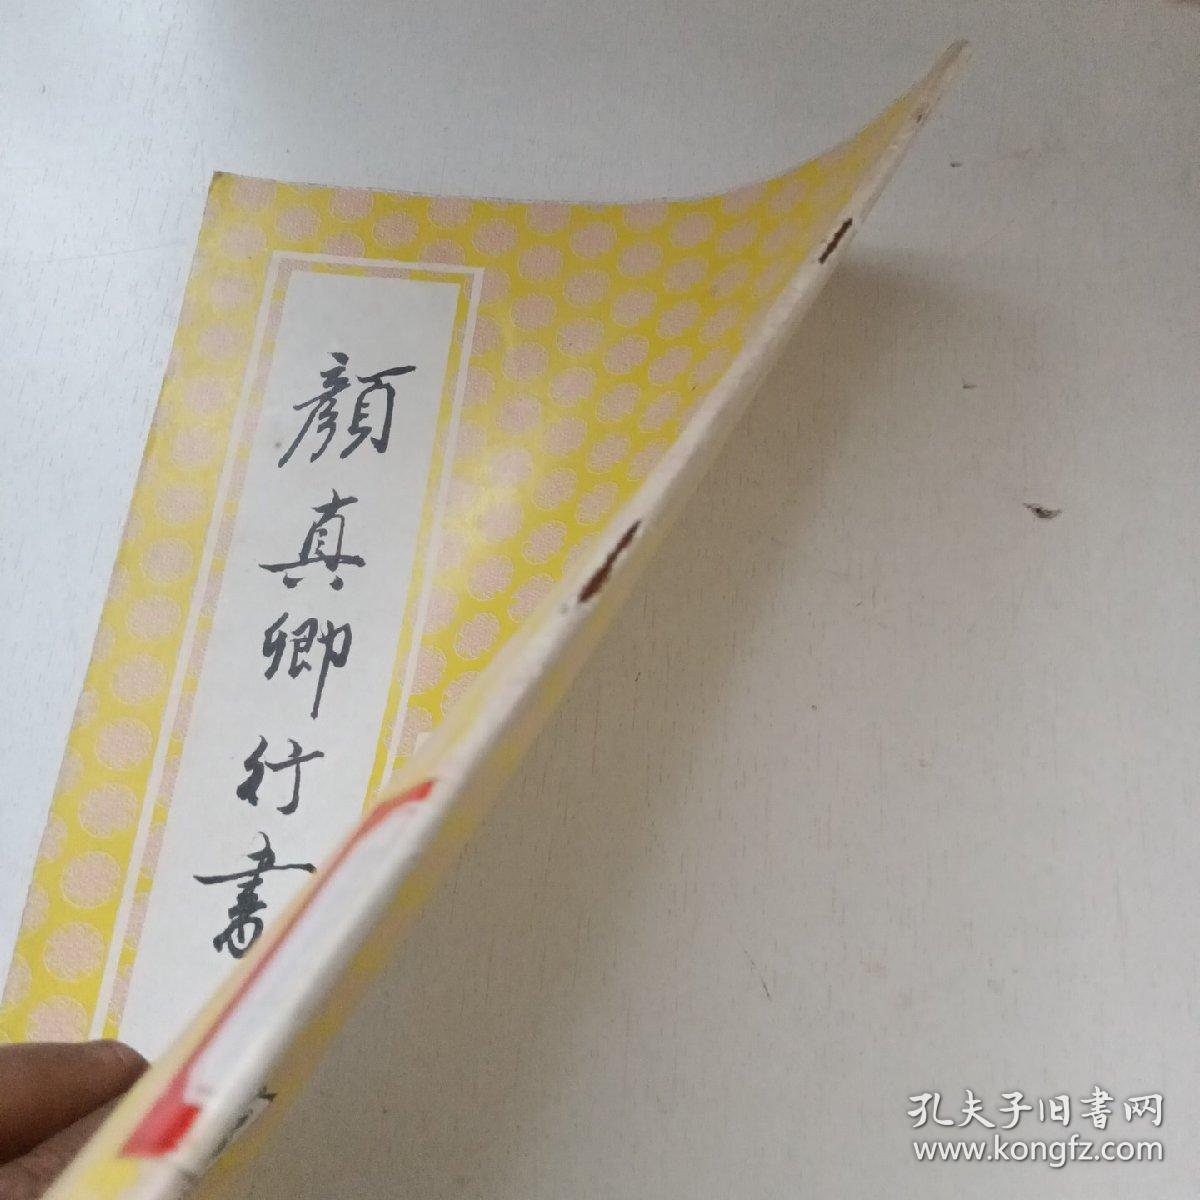 顔真卿行書
孔夫子旧書网
www.kongfz.com